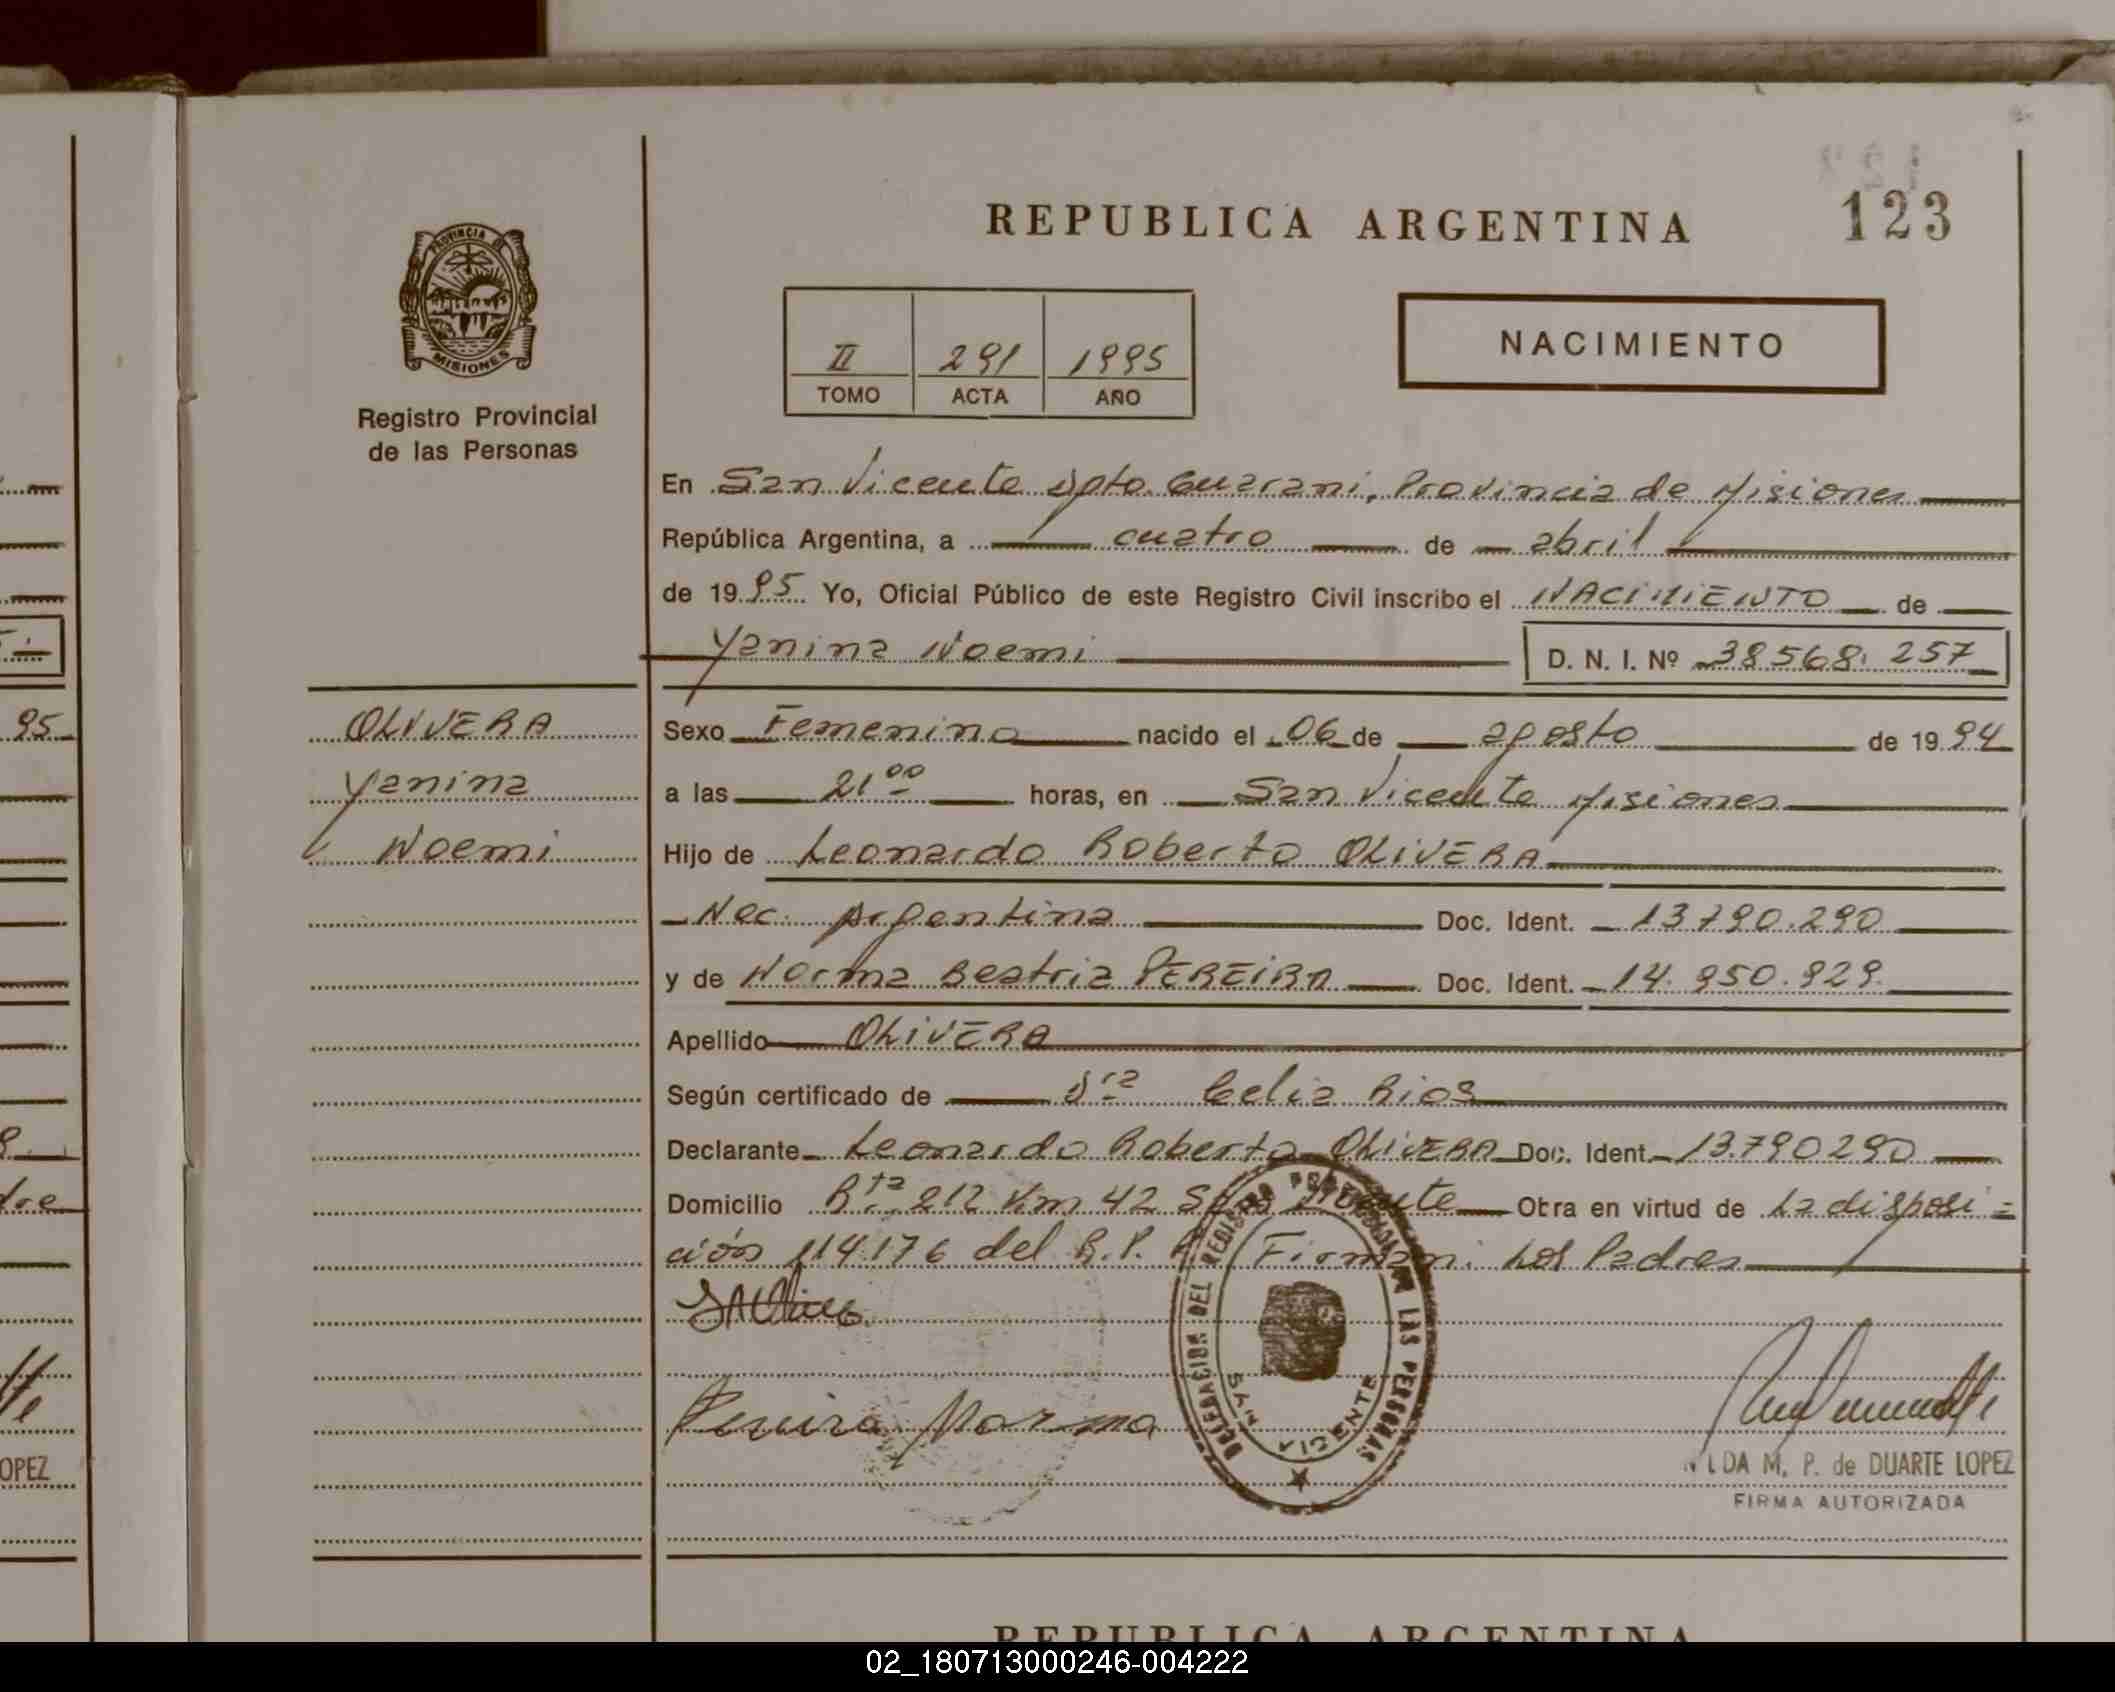 REPUBLICA ARGENTINA
123
PROVINCIA DE
MISIONES
Registro Provincial
de las Personas
II 291 1995
TOMO ACTA AÑO
NACIMIENTO
En San Vicente Dpto. Guarani, Provincia de Misiones
República Argentina, a cuatro de abril
de 1995 Yo, Oficial Público de este Registro Civil inscribo el NACIMIENTO de
Yanina Noemi D. N. I. Nº 38568.257
OLIVERA
Yanina
Noemi
Sexo Femenino nacido el 06 de agosto de 1994
a las 21 00 horas, en San Vicente Misiones
Hijo de Leonardo Roberto OLIVERA
Nac. Argentina Doc. Ident. 13790.290
y de Norma Beatriz PEREIRA Doc. Ident. 14.950.929.
Apellido OLIVERA
Según certificado de Dra Celia Rios
Declarante Leonardo Roberto OLIVERA Doc. Ident. 13.790290
Domicilio Rta 212 Km 42 San Vicente Obra en virtud de La disposi=
ción 114176 del R.P. Firman: Los Padres
DELEGACION DEL REGISTRO PROVINCIAL DE LAS PERSONAS
SAN VICENTE
Pereira Norma
M. P. de DUARTE LOPEZ
FIRMA AUTORIZADA
95
dre
OPEZ
REPUBLICA ARGENTINA
02_180713000246-004222